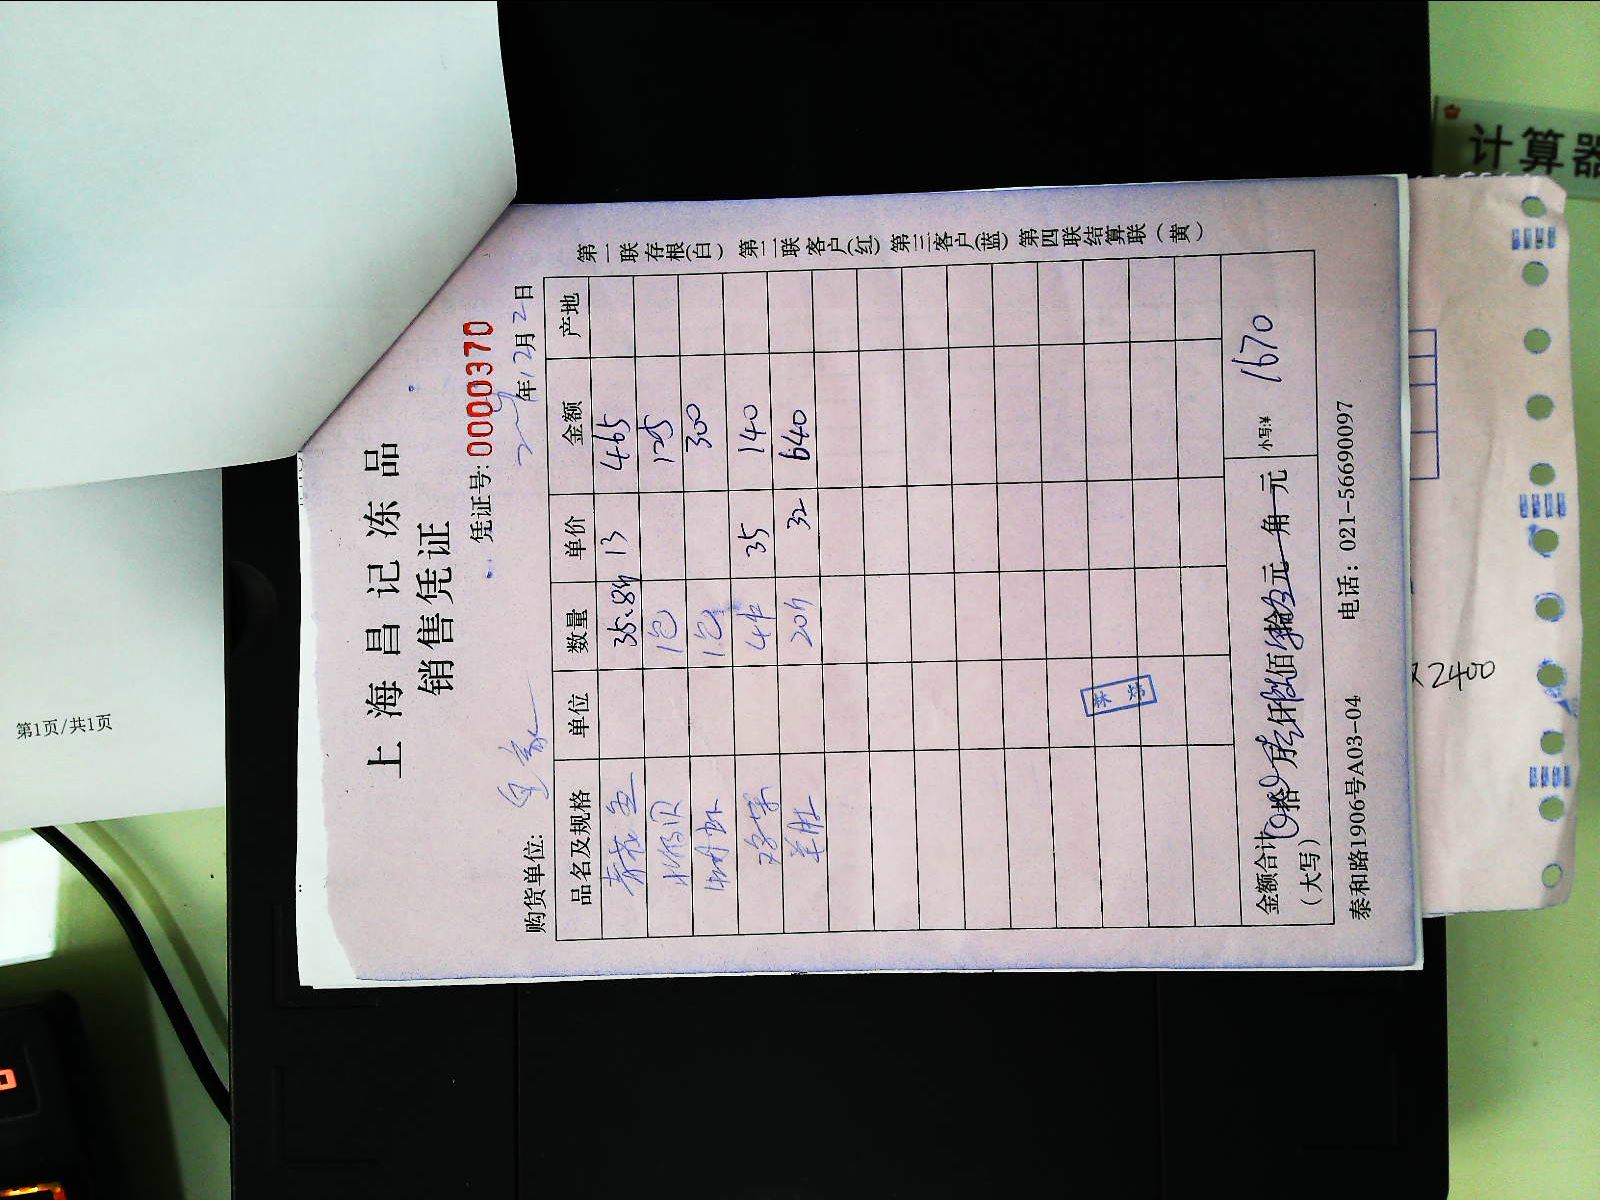 上海昌记冻品
销售凭证
凭证号: 0000370
年12月2日
购货单位:
品名及规格 单位 数量 单价 金额 产地
35.8斤 13 465
1包 125
1包 300
4 35 140
羊肚 20斤 32 640
金额合计 拾 仟 佰 元 角 元 小写:¥ 1670
(大写)
泰和路1906号A03-04 电话: 021-56690097
第一联存根(白) 第二联客户(红) 第三客户(蓝) 第四联结算联(黄)
第1页/共1页
计算器
2400